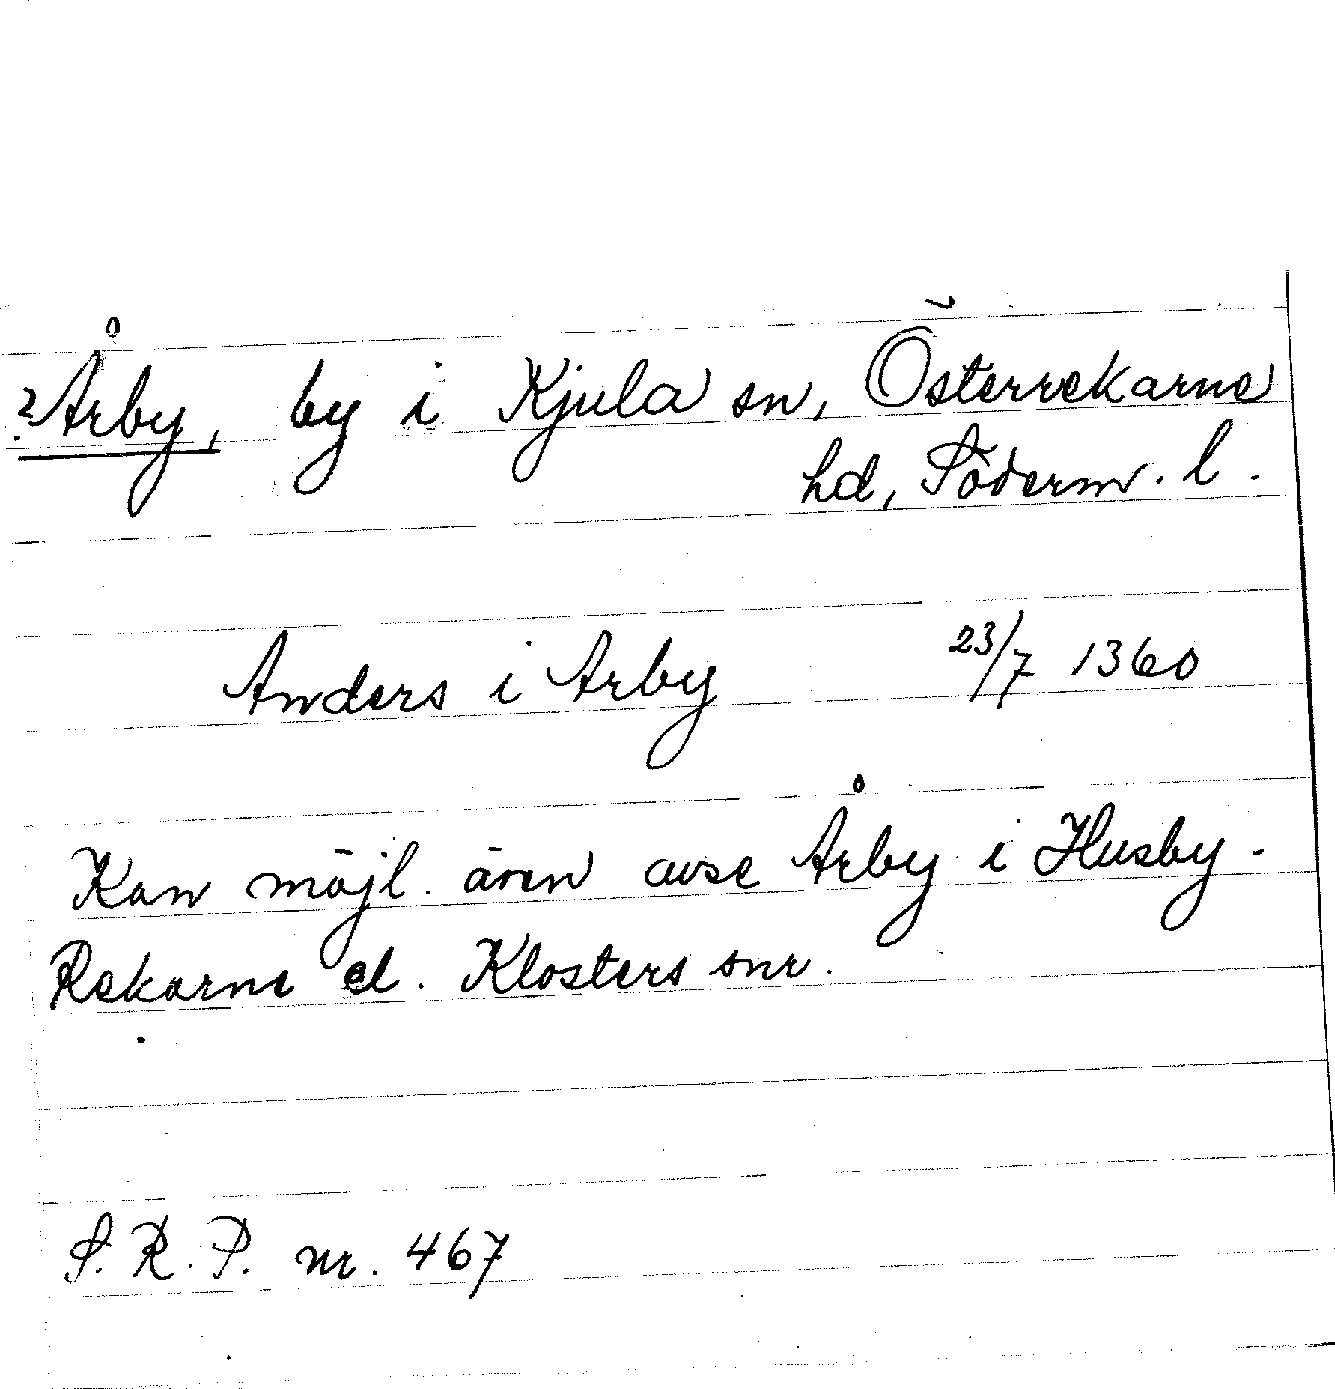 ?Årby, by i Kjula sn, Österrekarne
hd, Söderm. l.
Anders i Arby 23/7 1360
Kan möjl. även avse Årby i Husby-
Rekarne el. Klosters snr.
S.R.P. nr. 467